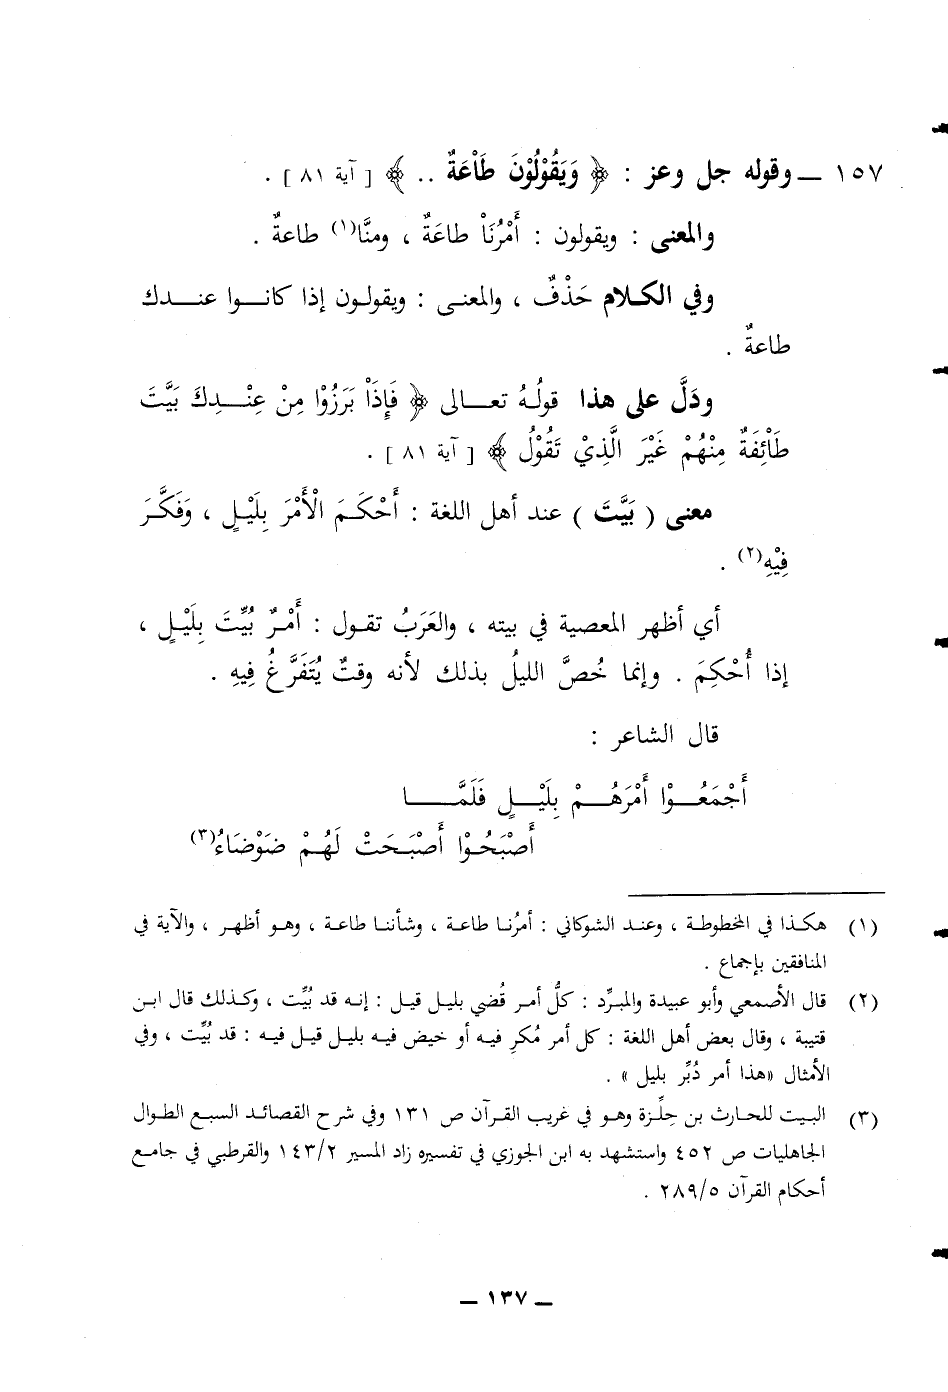 ١٥٧ ــ وقوله جل وعز : ﴿ وَيَقُوْلُوْنَ طَاْعَةٌ .. ﴾ [ آية ٨١ ] .
والمعنى : ويقولون : أَمْرُنَاْ طاعَةٌ ، ومنَّا(١) طاعةٌ .
وفي الكلام حَذْفٌ ، والمعنى : ويقولون إذا كانوا عندك
طاعةٌ .
ودَلَّ على هذا قولُهُ تعالى ﴿ فَإِذَاْ بَرَزُوْا مِنْ عِنْدِكَ بَيَّتَ
طَاْئِفَةٌ مِنْهُمْ غَيْرَ الَّذِيْ تَقُوْلُ ﴾ [ آية ٨١ ] .
معنى ( بَيَّتَ ) عند أهل اللغة : أَحْكَمَ الْأَمْرَ بِلَيْلٍ ، وَفَكَّرَ
فِيْهِ(٢) .
أي أظهر المعصية في بيته ، والعَرَبُ تقول : أَمْرٌ بُيِّتَ بِلَيْلٍ ،
إذا أُحْكِمَ . وإنما خُصَّ الليلُ بذلك لأنه وقتٌ يُتَفَرَّغُ فِيهِ .
قال الشاعر :
أَجْمَعُوْا أَمْرَهُمْ بِلَيْلٍ فَلَمَّا
أَصْبَحُوْا أَصْبَحَتْ لَهُمْ ضَوْضَاءُ(٣)
(١) هكذا في المخطوطة ، وعند الشوكاني : أمرُنا طاعة ، وشأننا طاعة ، وهو أظهر ، والآية في
المنافقين بإجماع .
(٢) قال الأصمعي وأبو عبيدة والمبرِّد : كلُّ أمر قُضي بليل قيل : إنه قد بُيِّت ، وكذلك قال ابن
قتيبة ، وقال بعض أهل اللغة : كل أمر مُكرِ فيه أو خيض فيه بليل قيل فيه : قد بُيِّت ، وفي
الأمثال «هذا أمر دُبِّر بليل » .
(٣) البيت للحارث بن حِلِّزة وهو في غريب القرآن ص ١٣١ وفي شرح القصائد السبع الطوال
الجاهليات ص ٤٥٢ واستشهد به ابن الجوزي في تفسيره زاد المسير ١٤٣/٢ والقرطبي في جامع
أحكام القرآن ٢٨٩/٥ .
ــ ١٣٧ ــ